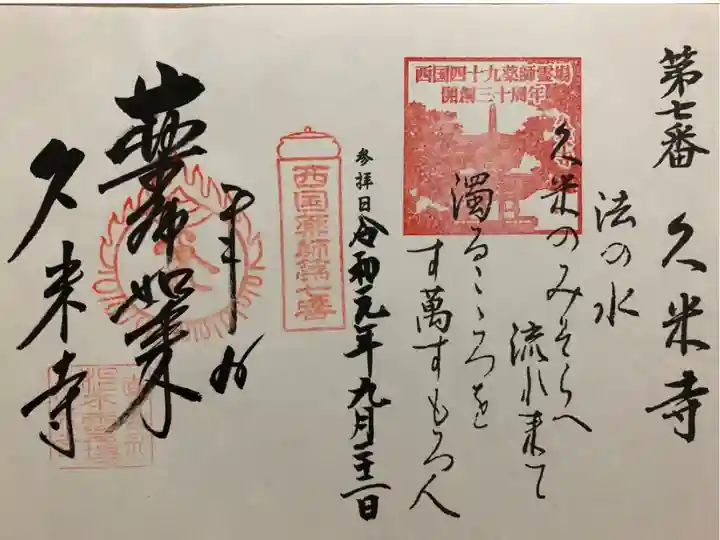 第七番 久米寺
法の水
流れ来て
久米のみそらへ
濁るこゝろを
す萬すもろ人
西国四十九薬師霊場
開創三十周年
参拝日 令和元年九月二十二日
西国薬師第七番
薬師如来
久米寺